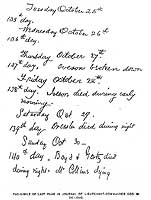 Tuesday October 25th
135 day.
Wednesday October 26th
136th day.
Thursday October 27th
137th day. Iverson broken down
Friday October 28th
138th day. Iverson died during early
morning.
Saturday Oct 29.
139th day. Dressler died during night
Sunday Oct 30 —
140th day. Boyd & Görtz died
during night. Mr Collins dying
FAC-SIMILE OF LAST PAGE IN JOURNAL OF LIEUTENANT-COMMANDER GEO. W.
DE LONG.